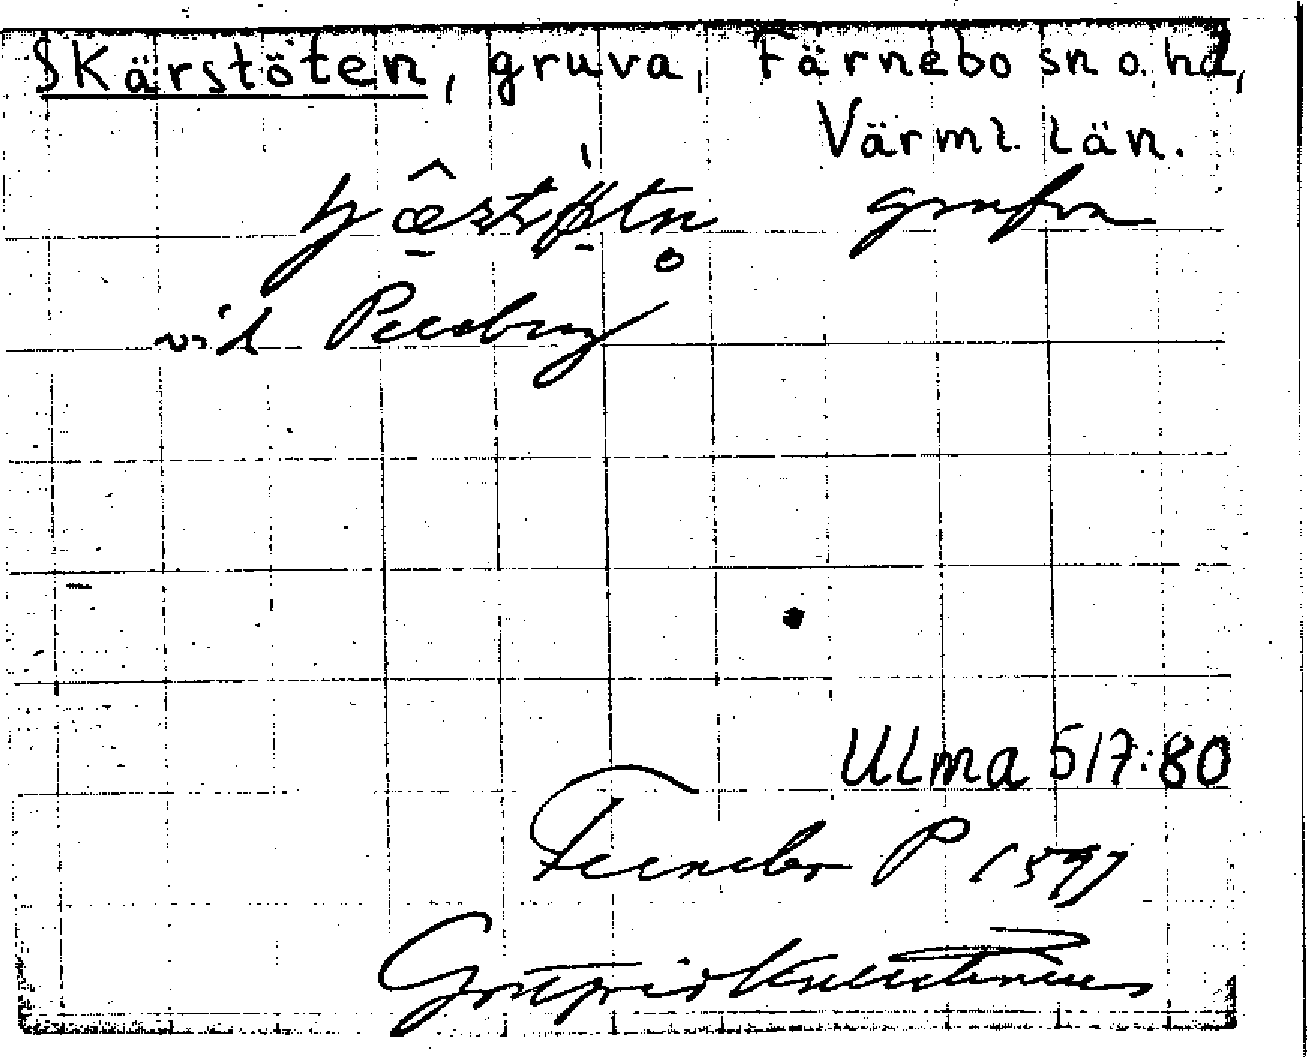 Skärstöten, gruva, Färnebo sn o. hd,
Värml. län.
grufva
vid Persberg
Ulma 517:80
Fernebo P 1597
Gottfrid Kallstenius